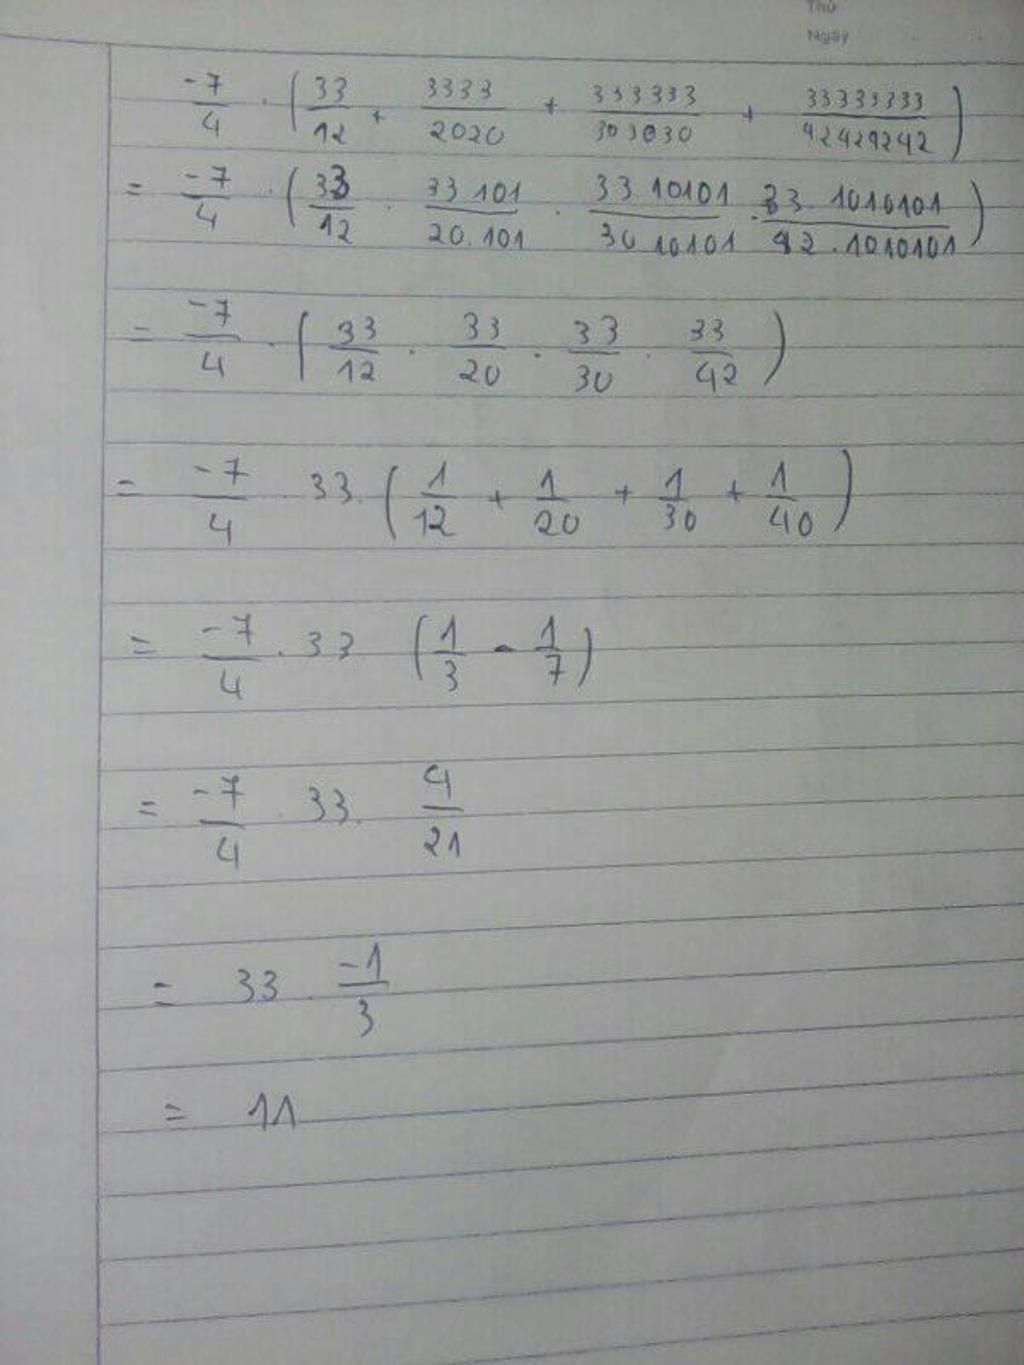 Thứ
Ngày
-7/4 . (33/12 + 3333/2020 + 333333/303030 + 33333333/42424242)
= -7/4 . (33/12 . 33 101/20.101 . 33 10101/30 10101 . 33 . 1010101/42 . 1010101)
= -7/4 . (33/12 . 33/20 . 33/30 . 33/42)
= -7/4 33. (1/12 + 1/20 + 1/30 + 1/40)
= -7/4 . 33 (1/3 - 1/7)
= -7/4 . 33. 4/21
= 33 . -1/3
= 11